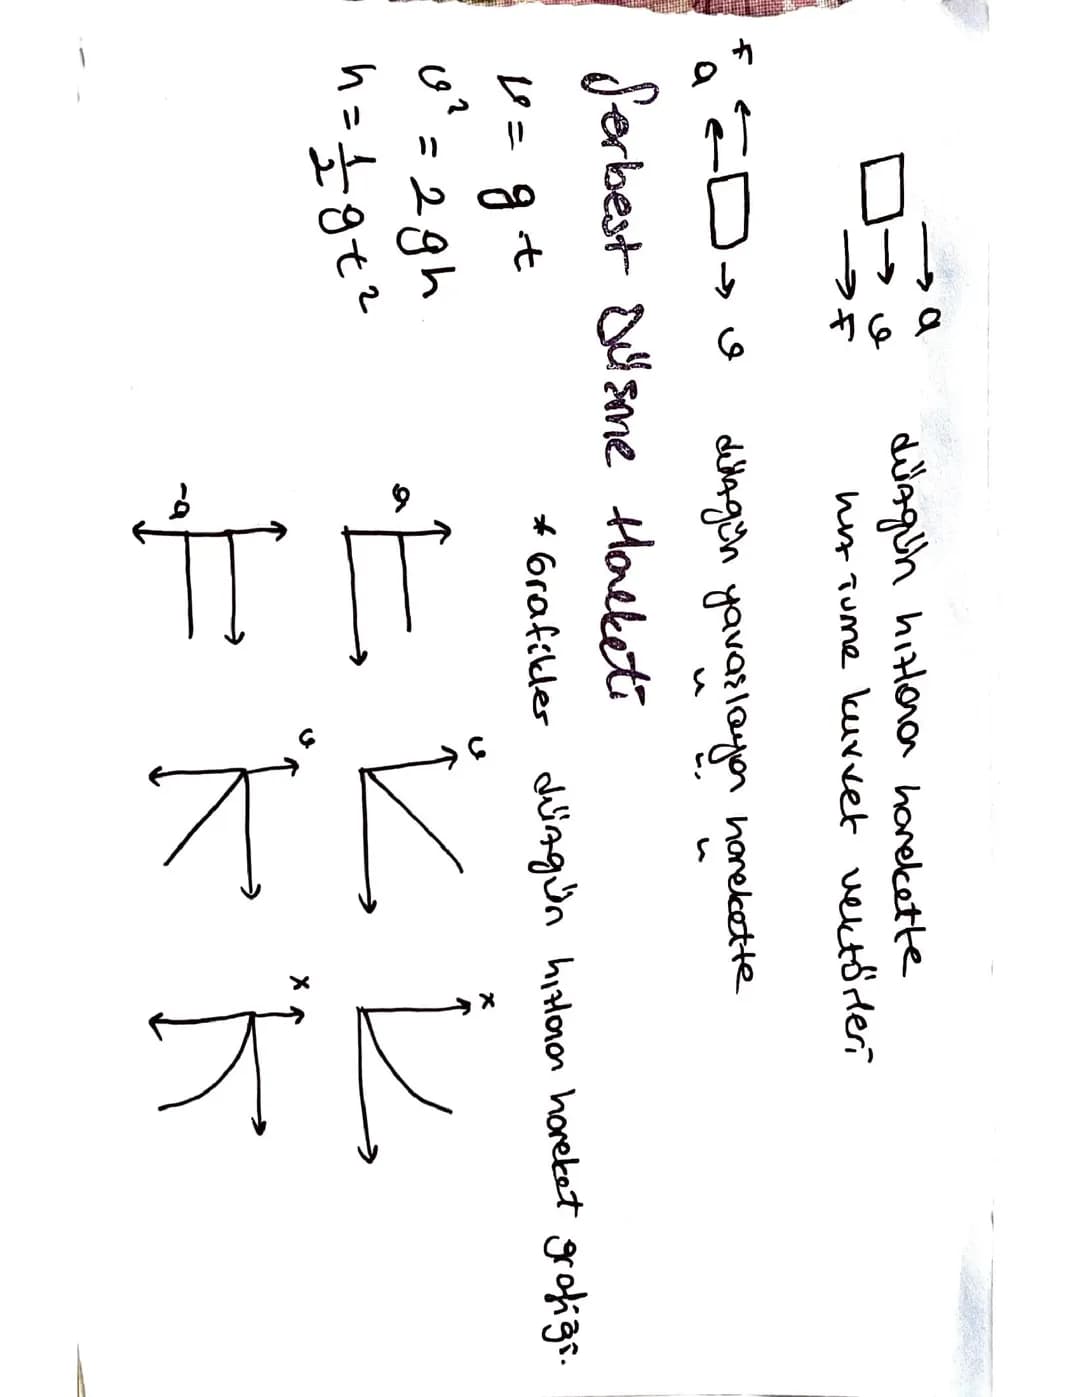 a
ϑ
F
düzgün hızlanan harekette
hız ivme kuvvet vektörleri
F
a
ϑ
düzgün yavaşlayan harekette
" " "
Serbest Düşme Hareketi
ϑ = g.t
ϑ² = 2gh
h = 1/2 gt²
* Grafikler düzgün hızlanan hareket grafiği.
a
ϑ
x
-a
ϑ
x